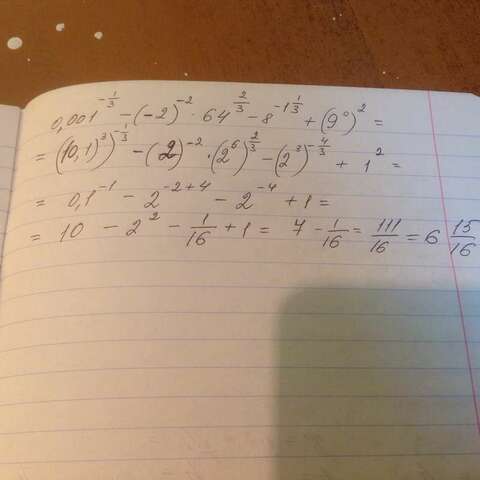 0,001^{-\frac{1}{3}} - (-2)^{-2} \cdot 64^{\frac{2}{3}} - 8^{-1\frac{1}{3}} + (9^0)^2 =
= (10,1)^3)^{-\frac{1}{3}} - (2)^{-2} \cdot (2^6)^{\frac{2}{3}} - (2^3)^{-\frac{4}{3}} + 1^2 =
= 0,1^{-1} - 2^{-2+4} - 2^{-4} + 1 =
= 10 - 2^2 - \frac{1}{16} + 1 = 7 - \frac{1}{16} = \frac{111}{16} = 6\frac{15}{16}